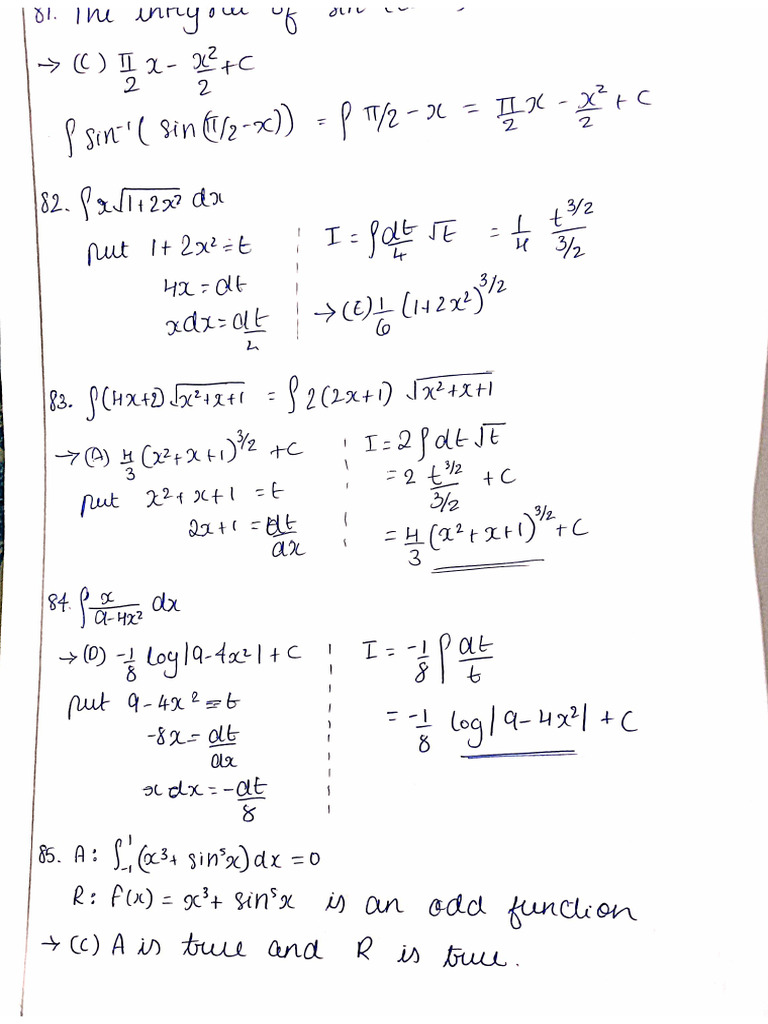 81. The
→ (C) π/2 x - x²/2 + C
∫ sin⁻¹( sin(π/2-x)) = ∫ π/2 - x = π/2 x - x²/2 + C
82. ∫x√(1+2x²) dx
put 1+ 2x² = t
4x = dt
xdx = dt/4
I = ∫dt/4 √t = 1/4 t^3/2 / 3/2
→ (E) 1/6 (1+2x²)^3/2
83. ∫(4x+2)√(x²+x+1) = ∫2(2x+1) √(x²+x+1)
→ (A) 4/3 (x²+x+1)^3/2 + C
put x²+x+1 = t
2x+1 = dt/dx
I = 2∫dt√t
= 2 t^3/2 / 3/2 + C
= 4/3 (x²+x+1)^3/2 + C
84. ∫ x/(9-4x²) dx
→ (D) -1/8 log|9-4x²| + C
put 9-4x² = t
-8x = dt/dx
x dx = -dt/8
I = -1/8 ∫ dt/t
= -1/8 log|9-4x²| + C
85. A: ∫₋₁¹ (x³+ sin⁵x) dx = 0
R: f(x) = x³+ sin⁵x is an odd function
→ (C) A is true and R is true.